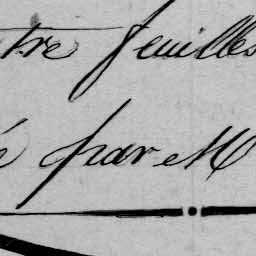 tre feuilles
é par M